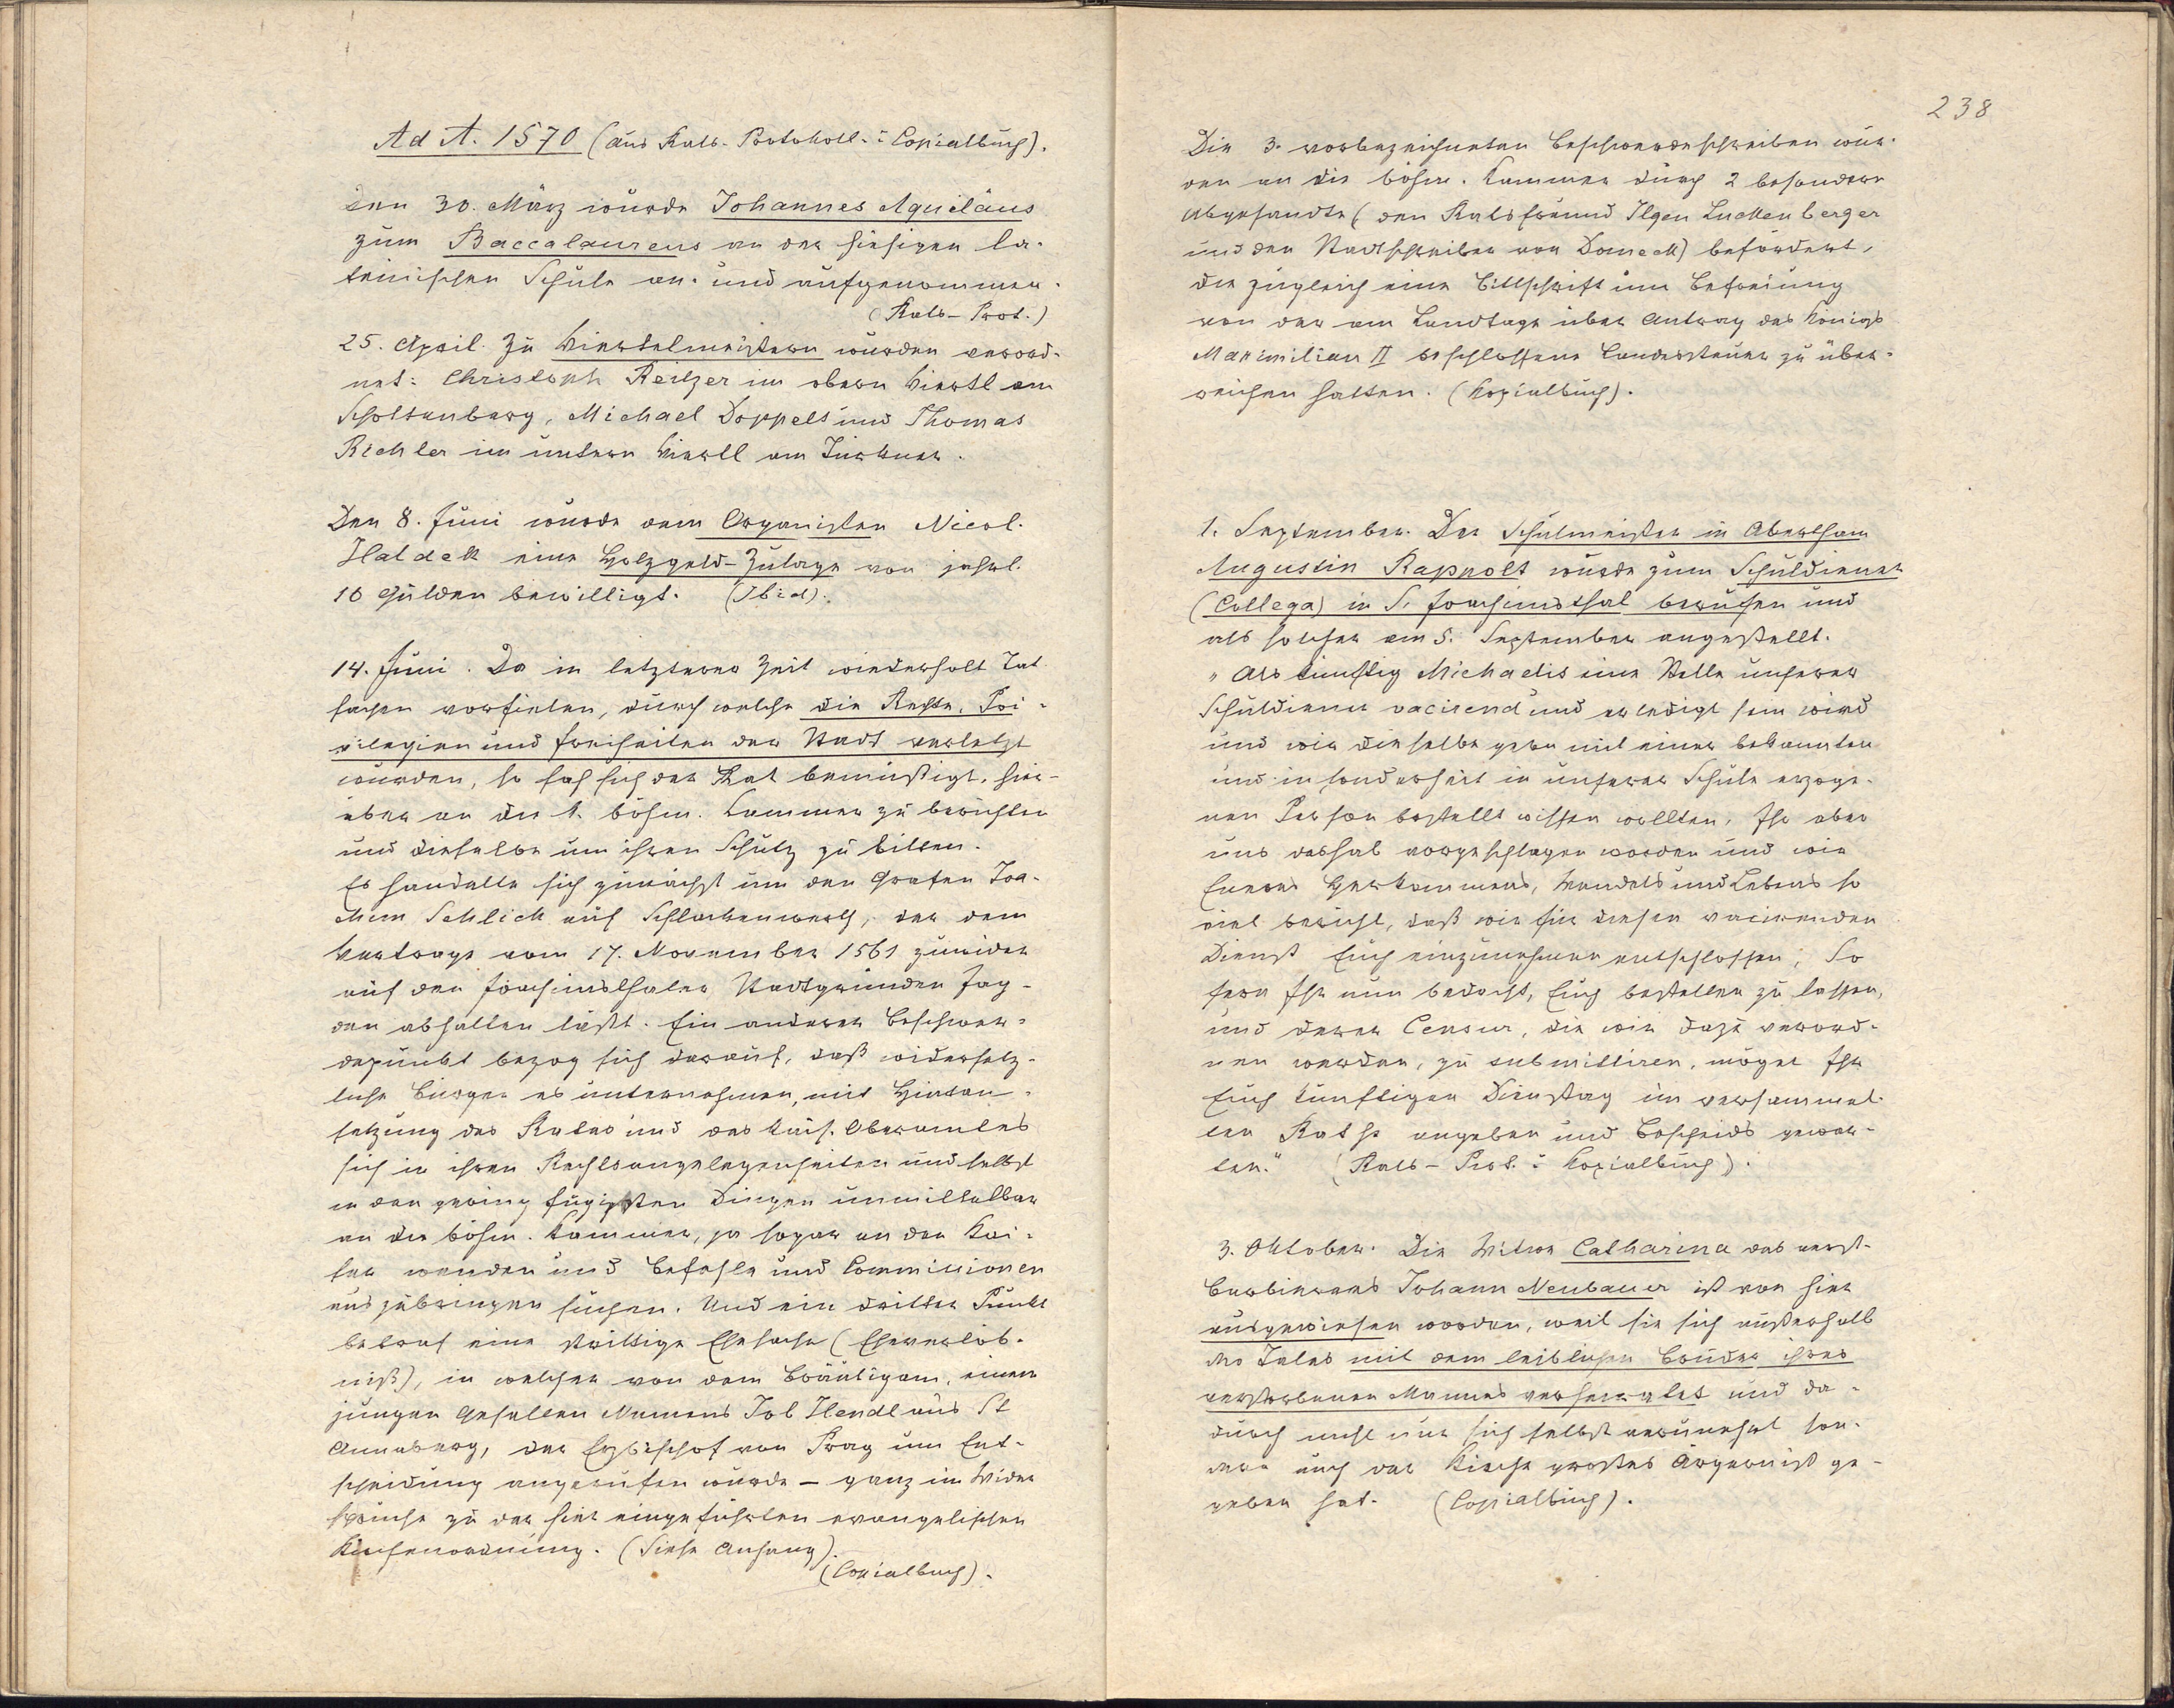 Ad A. 1570 (aus Rats-Protokoll- u. Copialbuch).
Den 30. März wurde Johannes Aquiläus
zum Baccalaureus an der hiesigen la-
teinischen Schule an- und aufgenommen.
(Rats-Prot.)
25. April. Zu Viertelmeistern wurden verord-
net: Christoph Reitzer im obern Viertl am
Schottenberg, Michael Doppelt und Thomas
Richter im untern Viertl am Türkner.
Den 8. Juni wurde dem Organisten Nicol.
Haldek eine Holzgeld-Zulage von jährl.
10 Gulden bewilligt. (Ibid).
14. Juni. Da in letzterer Zeit wiederholt Tat
sachen vorfielen, durch welche die Rechte, Pri-
vilegien und Freiheiten der Stadt verletzt
wurden, so sah sich der Rat bemüßigt, hier-
über an die k. böhm. Kammer zu berichten
und dieselbe um ihren Schutz zu bitten.
Es handelte sich zunächst um den Grafen Joa-
chim Schlick auf Schlackenwerth, der dem
Vertrage vom 17. November 1561 zuwider
auf den Joachimsthaler Stadtgründen Jag-
den abhalten läßt. Ein anderer Beschwer-
depunkt bezog sich darauf, daß widersetz-
liche Bürger es unternehmen, mit Hintan-
setzung des Rates und des kais. Oberamtes
sich in ihren Rechtsangelegenheiten und selbst
in den geringfügigsten Dingen unmittelbar
an die böhm. Kammer, ja sogar an den Kai-
ser wenden und Befehle und Commissionen
auszubringen suchen. Und ein dritter Punkt
betraf eine strittige Ehesache (Eheverlöb-
niß), in welcher von dem Bräutigam, einem
jungen Gesellen Namens Job Hendl aus St
Annaberg, der Erzbischof von Prag um Ent-
scheidung angerufen wurde – ganz im Wider
spruche zu der hier eingeführten evangelischen
Kirchenordnung. (Siehe Anhang).
(Copialbuch).
238
Die 3. vorbezeichneten Beschwerdeschreiben wur-
den an die böhm. Kammer durch 2 besondere
Abgesandte (den Ratsfreund Ilgen Luckenberger
und den Stadtschreiber von Domeck) befördert,
die zugleich eine Bittschrift um Befreiung
von der am Landtage über Antrag des Königs
Maximilian II beschlossene Landessteuer zu über-
reichen hatten. (Kopialbuch).
1. September. Der Schulmeister in Abertham
Augustin Rappolt wurde zum Schuldiener
(Collega) in S. Joachimsthal berufen und
als solcher am 5. September angestellt.
„Als künftig Michaelis eine Stelle unserer
Schuldiener vacirend und erledigt sein wird
und wir dieselbe gern mit einer bekannten
und insonderheit in unserer Schule erzoge-
nen Person bestellt wissen wollten, Ihr aber
uns deshalb vorgeschlagen worden und wir
Eueres Herkommens, Wandels und Lebens so
viel bericht, daß wir für diesen vacirenden
Dienst Euch einzunehmen entschlossen; So
fern Ihr nun bedacht, Euch bestellen zu lassen,
und derer Censur, die wir dazu verord-
nen werden, zu submittiren, möget Ihr
Euch künftigen Dienstag im versammel-
ten Rathe angeben und Bescheids gewar-
ten." (Rats-Prot. u. Kopialbuch).
3. Oktober. Die Witwe Catharina des verst.
Barbierers Johann Neubauer ist von hier
ausgewiesen worden, weil sie sich außerhalb
des Tales mit dem leiblichen Bruder ihres
verstorbenen Mannes verheiratet und da-
durch nicht nur sich selbst verunehrt son-
dern auch der Kirche großes Ärgerniß ge-
geben hat. (Copialbuch).